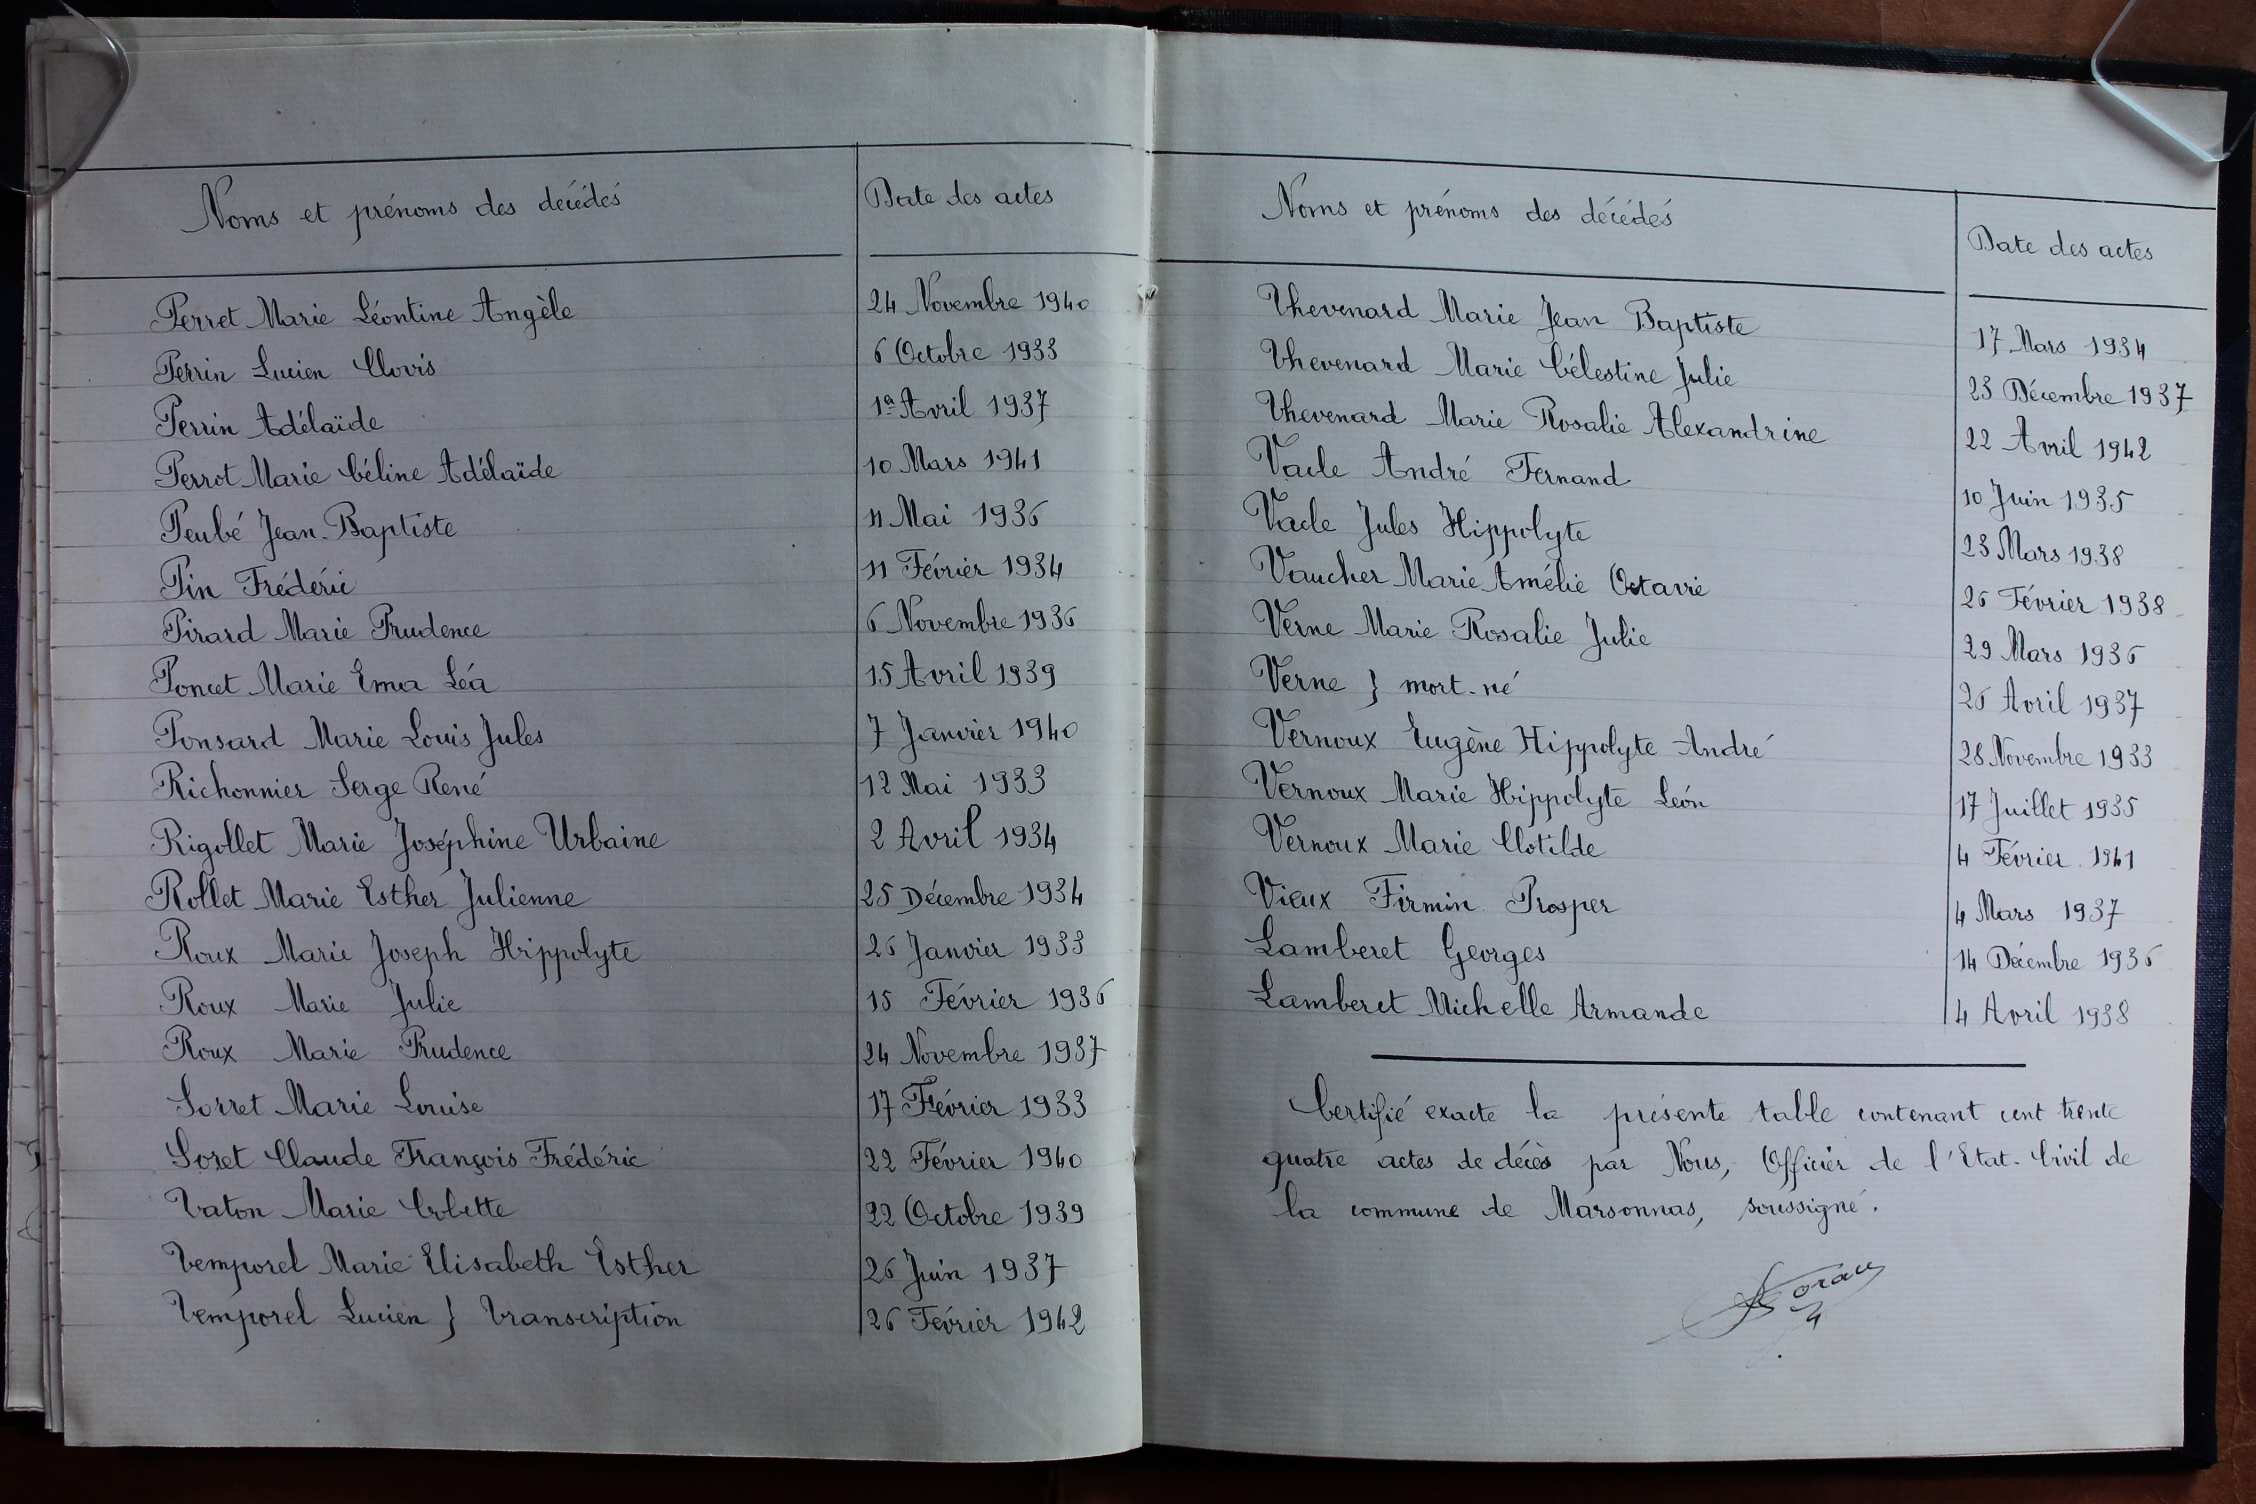 Noms et prénoms des décédés Date des actes
Perret Marie Léontine Angèle 24 Novembre 1940
Perrin Lucien Clovis 6 Octobre 1933
Perrin Adélaïde 1er Avril 1937
Perrot Marie Céline Adélaïde 10 Mars 1941
Peubé Jean-Baptiste 11 Mai 1936
Pin Frédéric 11 Février 1934
Pirard Marie Prudence 6 Novembre 1936
Poncet Marie Ema Léa 15 Avril 1939
Ponsard Marie Louis Jules 7 Janvier 1940
Richonnier Serge René 12 Mai 1933
Rigollet Marie Joséphine Urbaine 2 Avril 1934
Rollet Marie Esther Julienne 25 Décembre 1934
Roux Marie Joseph Hippolyte 26 Janvier 1933
Roux Marie Julie 15 Février 1936
Roux Marie Prudence 24 Novembre 1937
Sorret Marie Louise 17 Février 1933
Soret Claude François Frédéric 22 Février 1940
Taton Marie Colette 22 Octobre 1939
Temporel Marie Elisabeth Esther 26 Juin 1937
Temporel Lucien } transcription 26 Février 1942
Noms et prénoms des décédés Date des actes
Thevenard Marie Jean Baptiste 17 Mars 1934
Thevenard Marie Célestine Julie 23 Décembre 1937
Thevenard Marie Rosalie Alexandrine 22 Avril 1942
Vacle André Fernand 10 Juin 1935
Vacle Jules Hippolyte 23 Mars 1938
Vaucher Marie Amélie Octavie 26 Février 1938
Verne Marie Rosalie Julie 29 Mars 1936
Verne } mort-né 26 Avril 1937
Vernoux Eugène Hippolyte André 28 Novembre 1933
Vernoux Marie Hippolyte Léon 17 Juillet 1935
Vernoux Marie Clotilde 4 Février 1941
Vieux Firmin Prosper 4 Mars 1937
Lamberet Georges 14 Décembre 1936
Lamberet Michelle Armande 4 Avril 1938
Certifié exacte la présente table contenant cent trente
quatre actes de décès par Nous, Officier de l'Etat-Civil de
la commune de Marsonnas, soussigné.